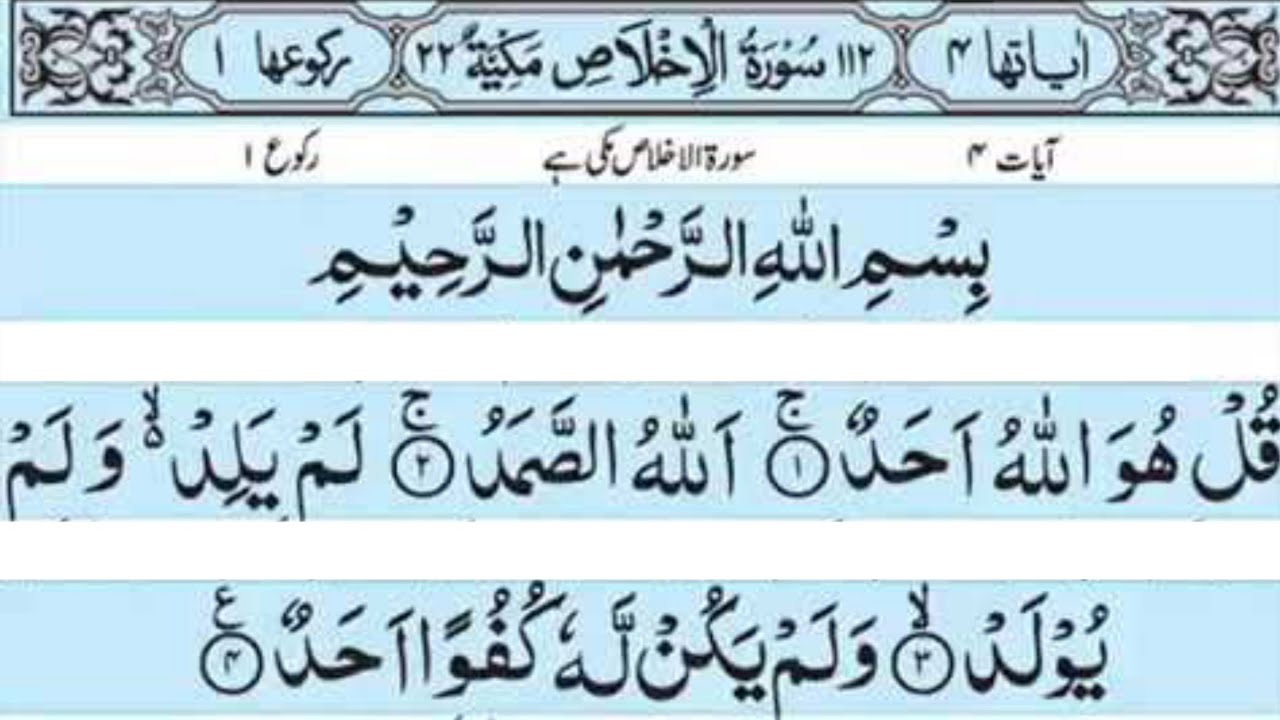 اٰیاتها ۴ ۱۱۲ سُوْرَةُ الْاِخْلَاصِ مَكِّیَّةٌ ۲۲ ركوعها ۱
آیات ۴ سورۃ الاخلاص مکی ہے رکوع ۱
بِسْمِ اللّٰهِ الرَّحْمٰنِ الرَّحِیْمِ
قُلْ هُوَ اللّٰهُ اَحَدٌ ۚ﴿۱﴾ اَللّٰهُ الصَّمَدُ ۚ﴿۲﴾ لَمْ یَلِدْ ۙ۬ وَ لَمْ
یُوْلَدْ ۙ﴿۳﴾ وَ لَمْ یَكُنْ لَّهٗ كُفُوًا اَحَدٌ ﴿۴﴾ ع